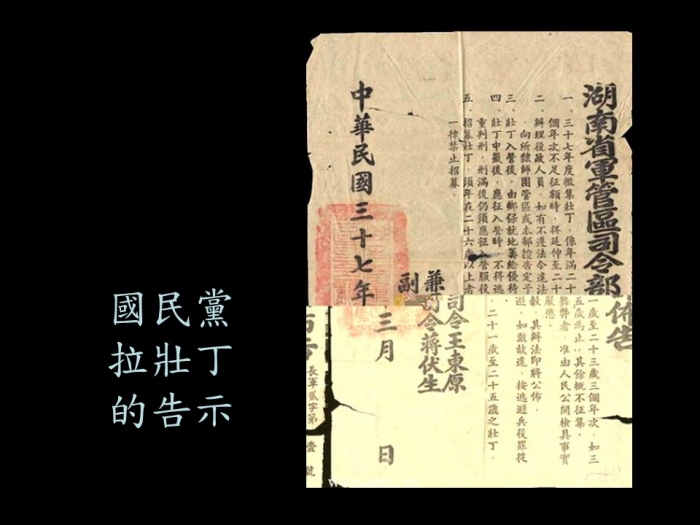 國民黨
拉壯丁
的告示
湖南省軍管區司令部佈告
一、三十七年度徵集壯丁，係年滿二十一歲至二十三歲三個年次，如三
個年次不足征額時，得延伸至二十五歲為止，其餘概不征集。
二、辦理役政人員，如有不遵法令違法舞弊者，准由人民公開檢具事實
向所隸師團管區或本部控告定予嚴懲。
三、壯丁入營後，由鄉保就地籌給優待穀，其辦法即將公佈。
四、壯丁中籤後，應征入營時，不得逃避，如敢故違，按逃避兵役罪從
重判刑，刑滿後仍須應征入營服役
五、招募壯丁，須年在二十六歲以上者二十一歲至二十五歲之壯丁，
一律禁止招募。
兼司令王東原
副司令蔣伏生
中華民國三十七年三月 日
長軍貳字第 壹 號